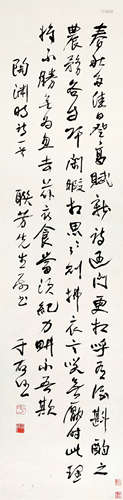 春秋多佳日登高賦新詩過門更相呼有酒斟酌之
農務各自歸閒暇輒相思々則披衣言笑無厭時此理
將不勝無為忽去茲衣食當須紀力耕不吾欺
陶淵明詩一首 聯芳先生屬書 于右任